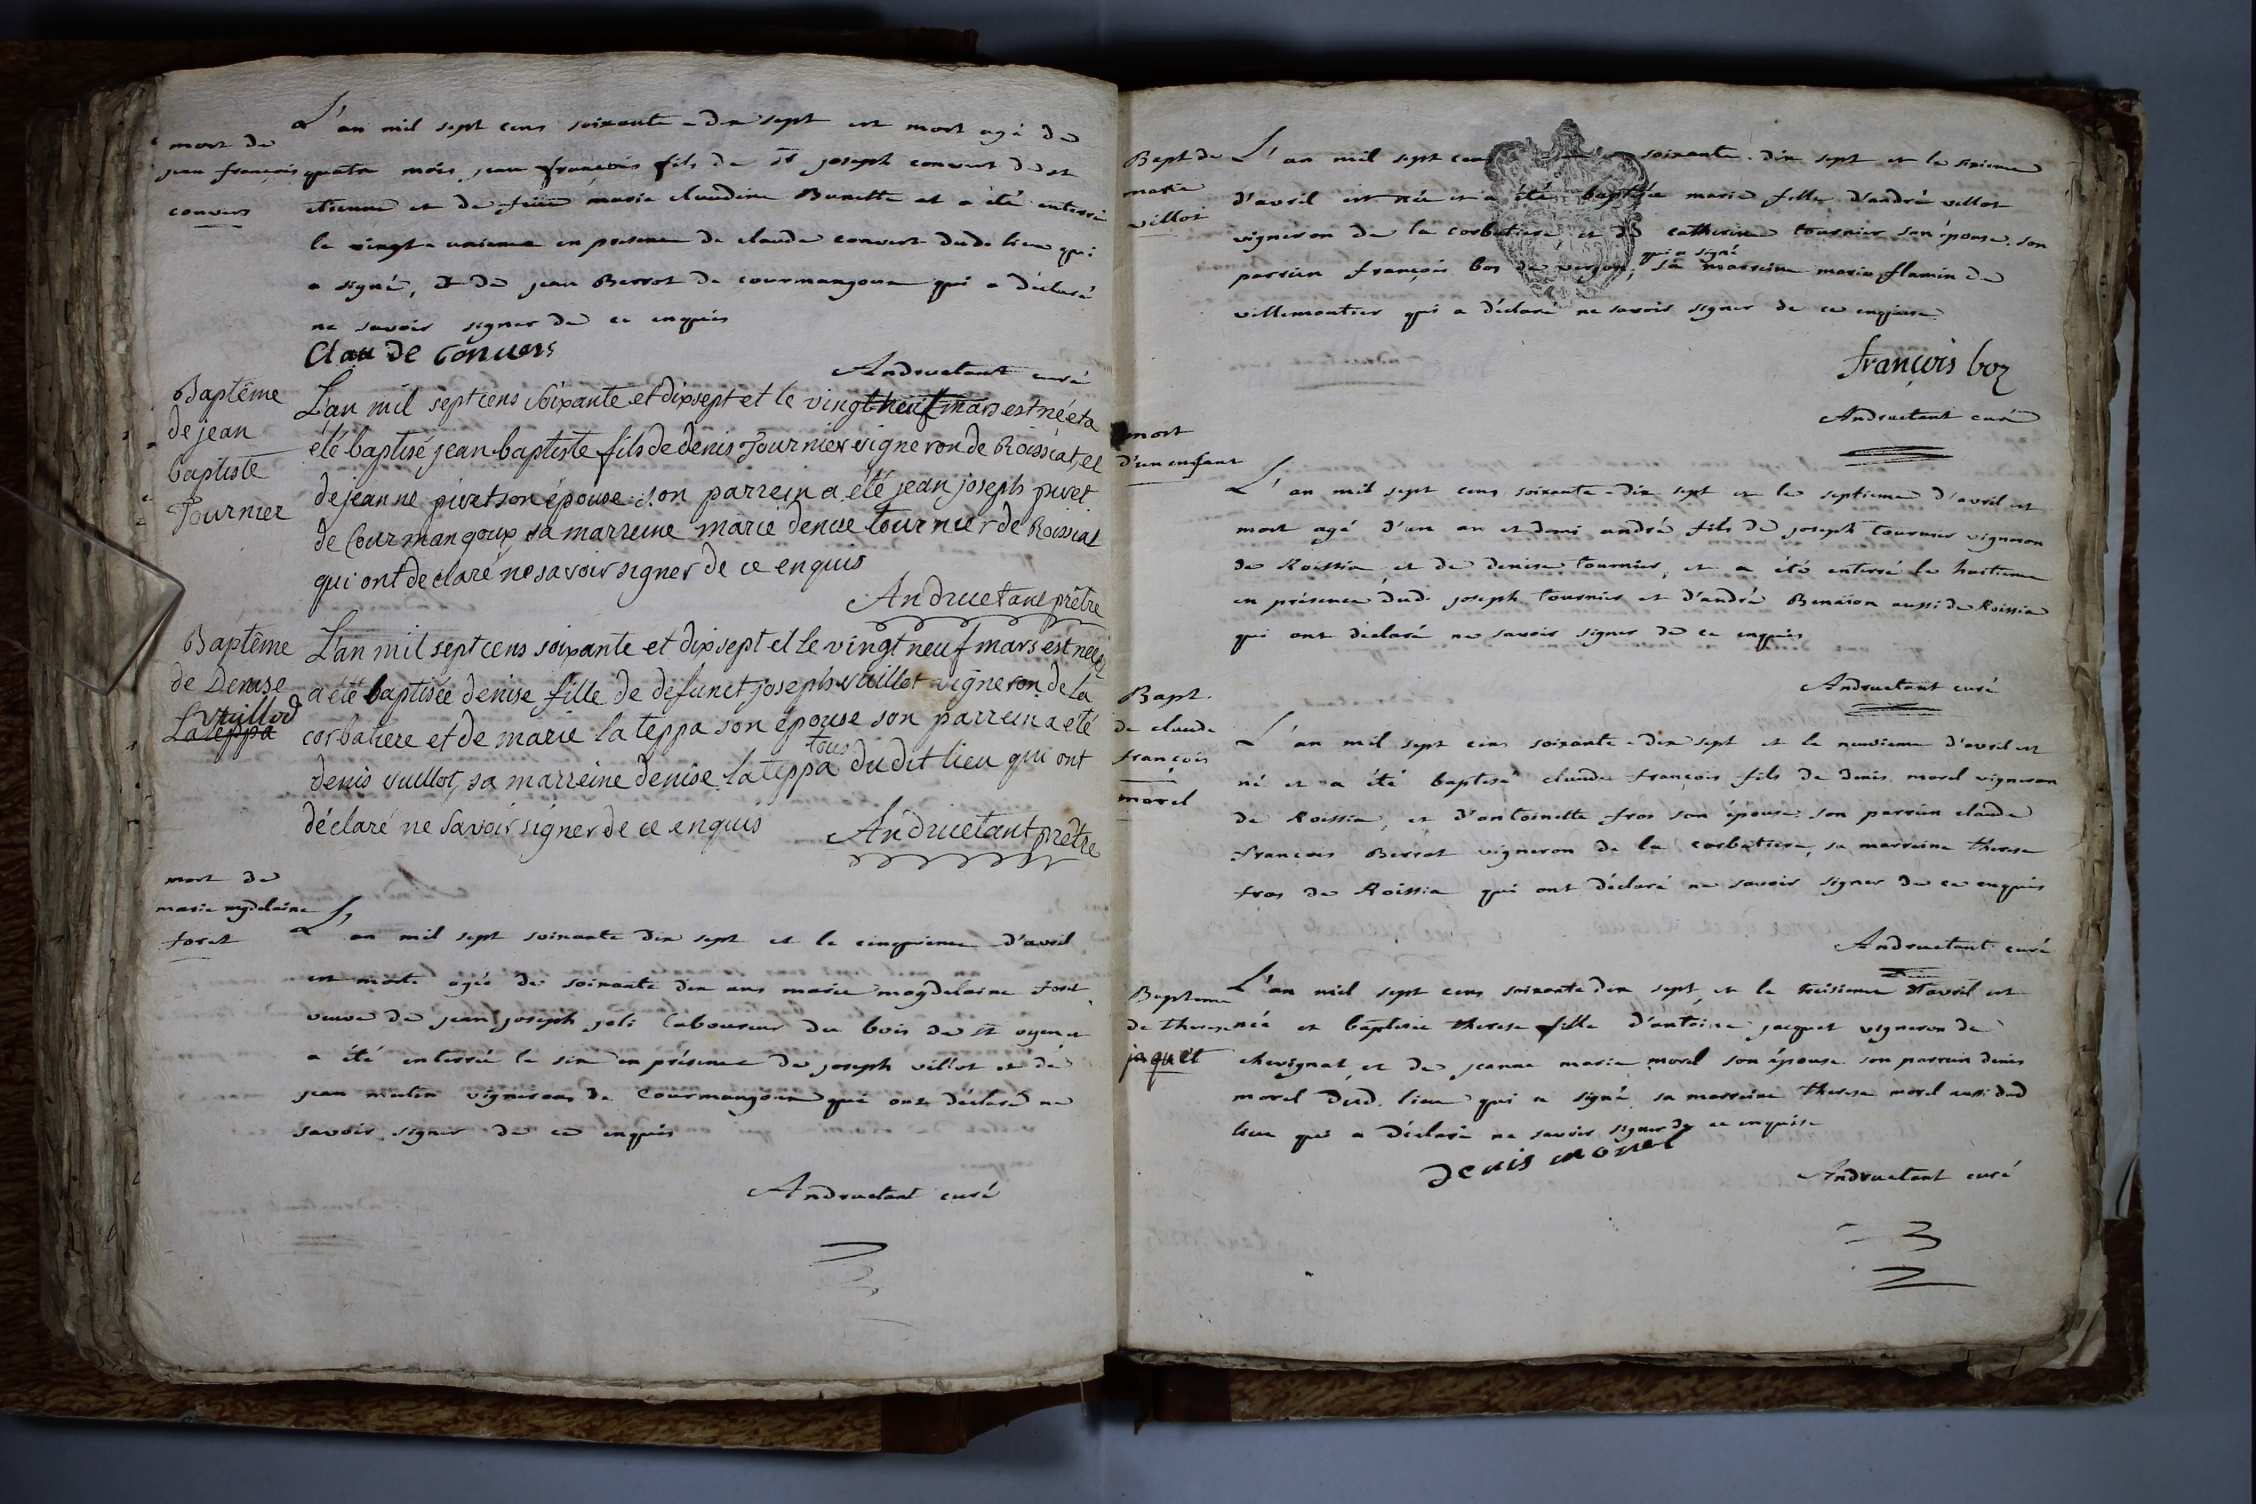 mort de
jean françois
convers
L'an mil sept cens soixante-dix sept est mort agé de
quatre mois jean françois fils de joseph convert de st
etienne et de feüe marie claudine Bunette et a été enterré
le vingt-unieme en presence de claude convert dudt lieu qui
a signé, & de jean Berrot de courmangoux qui a déclaré
ne savoir signer de ce enquis
Claude Convers
Andruetant curé
Baptême
de jean
baptiste
Tournier
L'an mil sept cens soixante et dixsept et le vingt neuf mars est né et a
été baptisé jean baptiste fils de denis Tournier vigneron de Roissiat, et
de jeanne pivet son épouse : son parrein a été jean joseph pivet
de Courmangoux, sa marreine marie denise tournier de Roissiat
qui ont declaré ne savoir signer de ce enquis
Andruetant prêtre
Baptême
de Denise
Vuillod
Lateppa
L'an mil sept cens soixante et dixsept et le vingt neuf mars est née et
a été baptisée denise fille de defunct joseph vuillot vigneron de la
corbatiere et de marie la teppa son épouse son parrein a été
denis vuillot, sa marreine denise la teppa tous du dit lieu qui ont
déclaré ne savoir signer de ce enquis
Andruetant prêtre
mort de
marie magdelaine
foret
L'an mil sept soixante dix sept et le cinquieme d'avril
est morte agée de soixante dix ans marie magdelaine foret
veuve de jean joseph joli laboureur du bois de st oyen et
a été enterrée le six en présence de joseph villot et de
jean mulin vignerons de Courmangoux qui ont déclaré ne
savoir signer de ce enquis
Andruetant curé
Bapt de
marie
villot
L'an mil sept cens soixante-dix sept et le sixieme
d'avril est née et a été baptisée marie fille d'andré villot
vigneron de la corbatiere et de catherine tournier son épouse. son
parrein françois boz de verjon, qui a signé sa marreine marie flamin de
villemoutier qui a déclaré ne savoir signer de ce enquise
françois boz
Andruetant curé
mort
d'un enfant
L'an mil sept cens soixante-dix sept et le septieme d'avril est
mort agé d'un an et demi andré fils de joseph tournier vigneron
de Roissia et de denise tournier, et a été enterré le huitieme
en présence dud. joseph tournier et d'andré Benaison aussi de Roissia
qui ont déclaré ne savoir signer de ce enquis
Andruetant curé
Bapt.
de claude
françois
morel
L'an mil sept cens soixante-dix sept et le neuvieme d'avril est
né et a été baptisé claude françois fils de denis morel vigneron
de Roissia, et d'antoinette fros son épouse: son parrein claude
françois Berrot vigneron de la corbatiere, sa marreine therese
fros de Roissia qui ont déclaré ne savoir signer de ce enquis
Andruetant curé
Bapteme
de therese
jaquet
L'an mil sept cens soixante dix sept et le treisieme d'avril est
née et baptisée therese fille d'antoine jacquet vigneron de
chevignat et de jeanne marie morel son épouse son parrein denis
morel dud. lieu qui a signé sa marreine therese morel aussi dud
lieu qui a déclaré ne savoir signer de ce enquise
denis morel
Andruetant curé